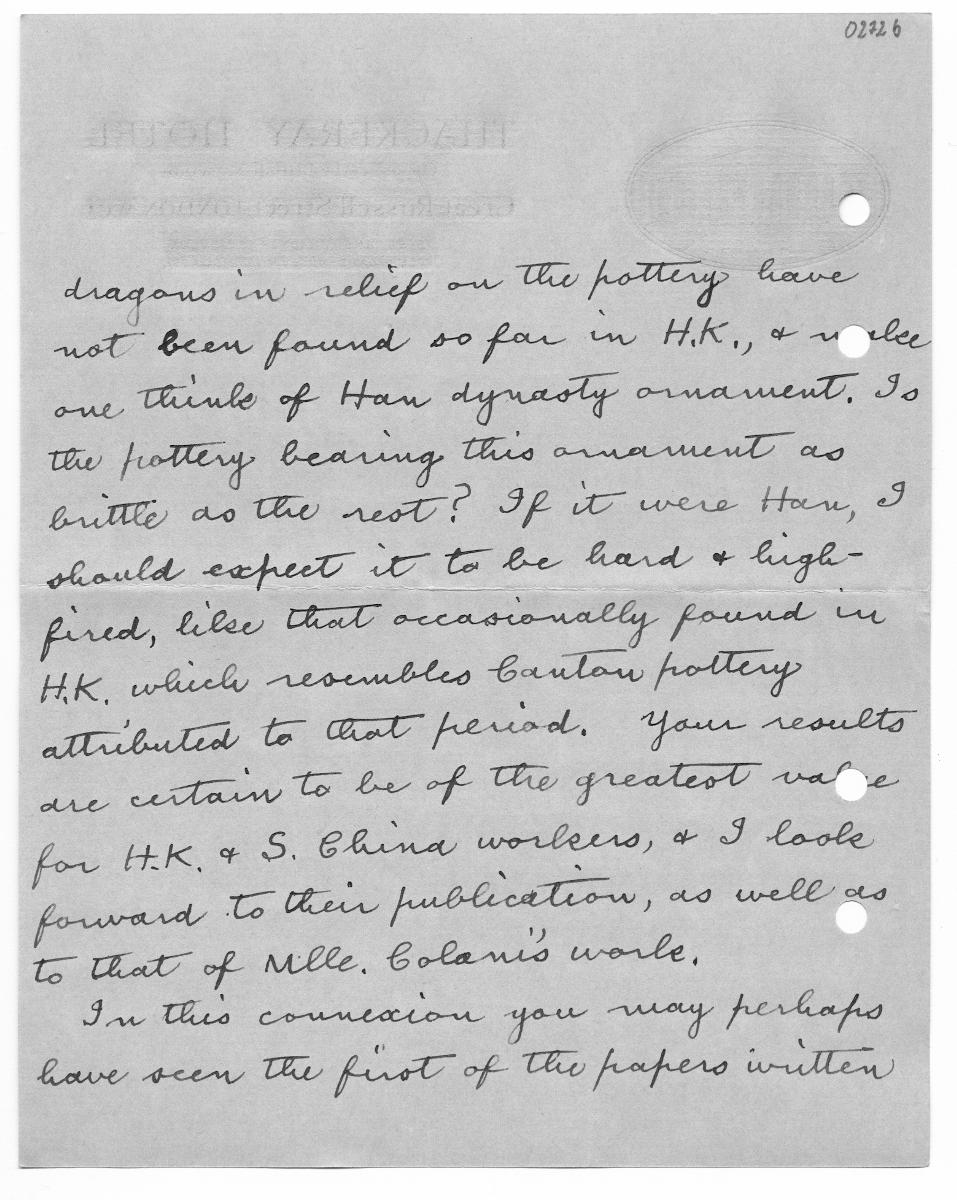 02726
THACKERAY HOTEL
Great Russell Street, LONDON WC1
dragons in relief on the pottery have
not been found so far in H.K., & make
one think of Han dynasty ornament. Is
the pottery bearing this ornament as
brittle as the rest? If it were Han, I
should expect it to be hard & high-
fired, like that occasionally found in
H.K. which resembles Canton pottery
attributed to that period. Your results
are certain to be of the greatest value
for H.K. & S. China workers, & I look
forward to their publication, as well as
to that of Mlle. Colani's work.
In this connexion you may perhaps
have seen the first of the papers written